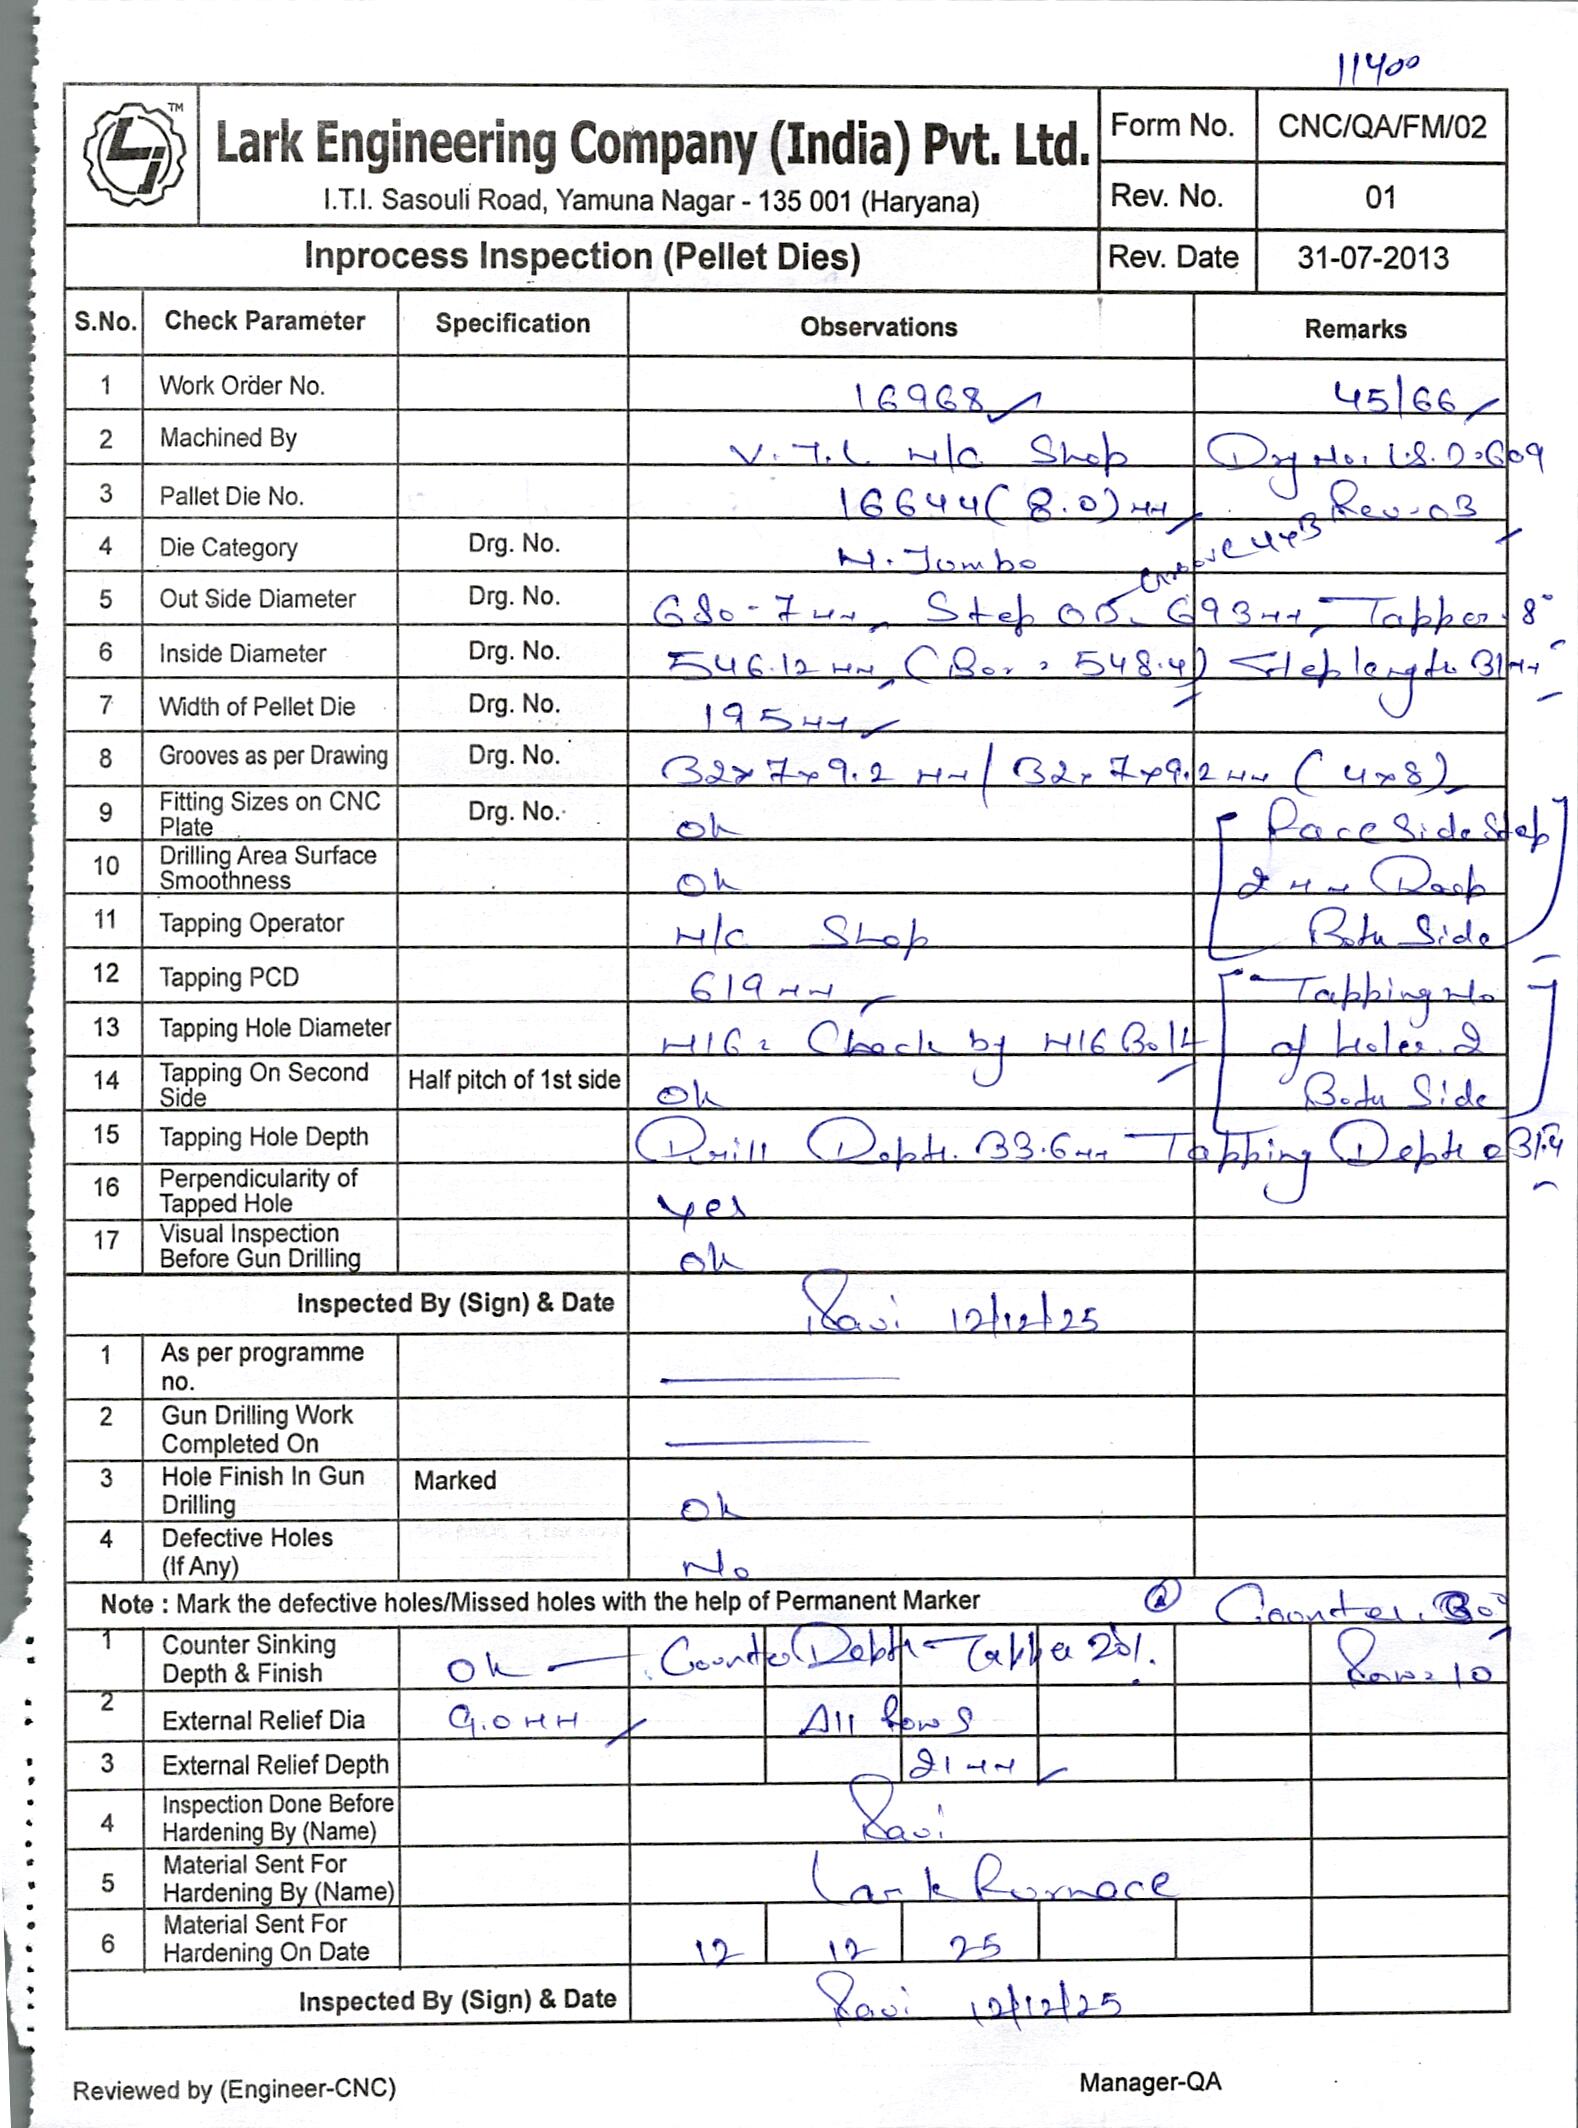 11400
TM
Lark Engineering Company (India) Pvt. Ltd.
I.T.I. Sasouli Road, Yamuna Nagar - 135 001 (Haryana)
Form No. CNC/QA/FM/02
Rev. No. 01
Inprocess Inspection (Pellet Dies) Rev. Date 31-07-2013
S.No. Check Parameter Specification Observations Remarks
1 Work Order No. 16968 45/66
2 Machined By V.T.L M/C Shop Drg No. L.S.D-609
3 Pallet Die No. 16644 (8.0) MM Rev-03
4 Die Category Drg. No. M. Jumbo Groove 4x3
5 Out Side Diameter Drg. No. 680-7 MM Step OD- 693 MM, Tapper 8°
6 Inside Diameter Drg. No. 546.12 MM (Bor = 548.4) Step length 31 MM
7 Width of Pellet Die Drg. No. 195 MM
8 Grooves as per Drawing Drg. No. 32x7x9.2 MM / 32x7x9.2 MM (4x8)
9 Fitting Sizes on CNC Plate Drg. No. Ok Face Side Step
10 Drilling Area Surface Smoothness Ok 2 MM Deep
11 Tapping Operator M/C Shop Both Side
12 Tapping PCD 619 MM Tapping No
13 Tapping Hole Diameter M16 = Check by M16 Bolt of Holes 2
14 Tapping On Second Side Half pitch of 1st side Ok Both Side
15 Tapping Hole Depth Drill Depth 33.6 MM Tapping Depth 31.4
16 Perpendicularity of Tapped Hole Yes
17 Visual Inspection Before Gun Drilling Ok
Inspected By (Sign) & Date Ravi 12/12/25
1 As per programme no.
2 Gun Drilling Work Completed On
3 Hole Finish In Gun Drilling Marked Ok
4 Defective Holes (If Any) No
Note : Mark the defective holes/Missed holes with the help of Permanent Marker Counter
1 Counter Sinking Depth & Finish Ok Counter Depth - Tapper 20%. Row = 10
2 External Relief Dia 9.0 MM All Rows
3 External Relief Depth 21 MM
4 Inspection Done Before Hardening By (Name) Ravi
5 Material Sent For Hardening By (Name) Lark Furnace
6 Material Sent For Hardening On Date 12 12 25
Inspected By (Sign) & Date Ravi 12/12/25
Reviewed by (Engineer-CNC) Manager-QA